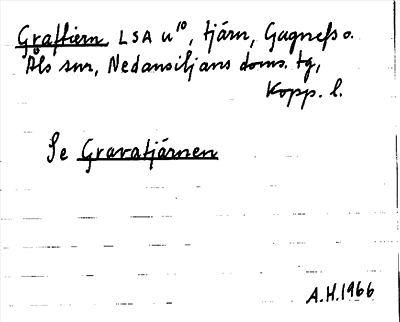 Graftiern LSA u¹⁰, tjärn, Gagnefs o.
Åls snr, Nedansiljans doms. tg,
Kopp. l.
Se Gravatjärnen
A.H. 1966